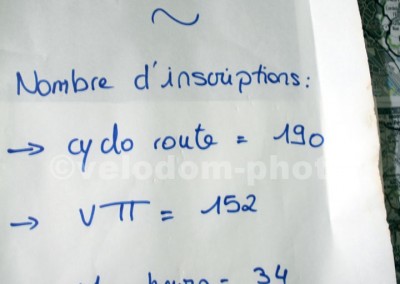 ~
Nombre d'inscriptions:
→ cyclo route = 190
©velodom-phot
→ VTT = 152
= 34